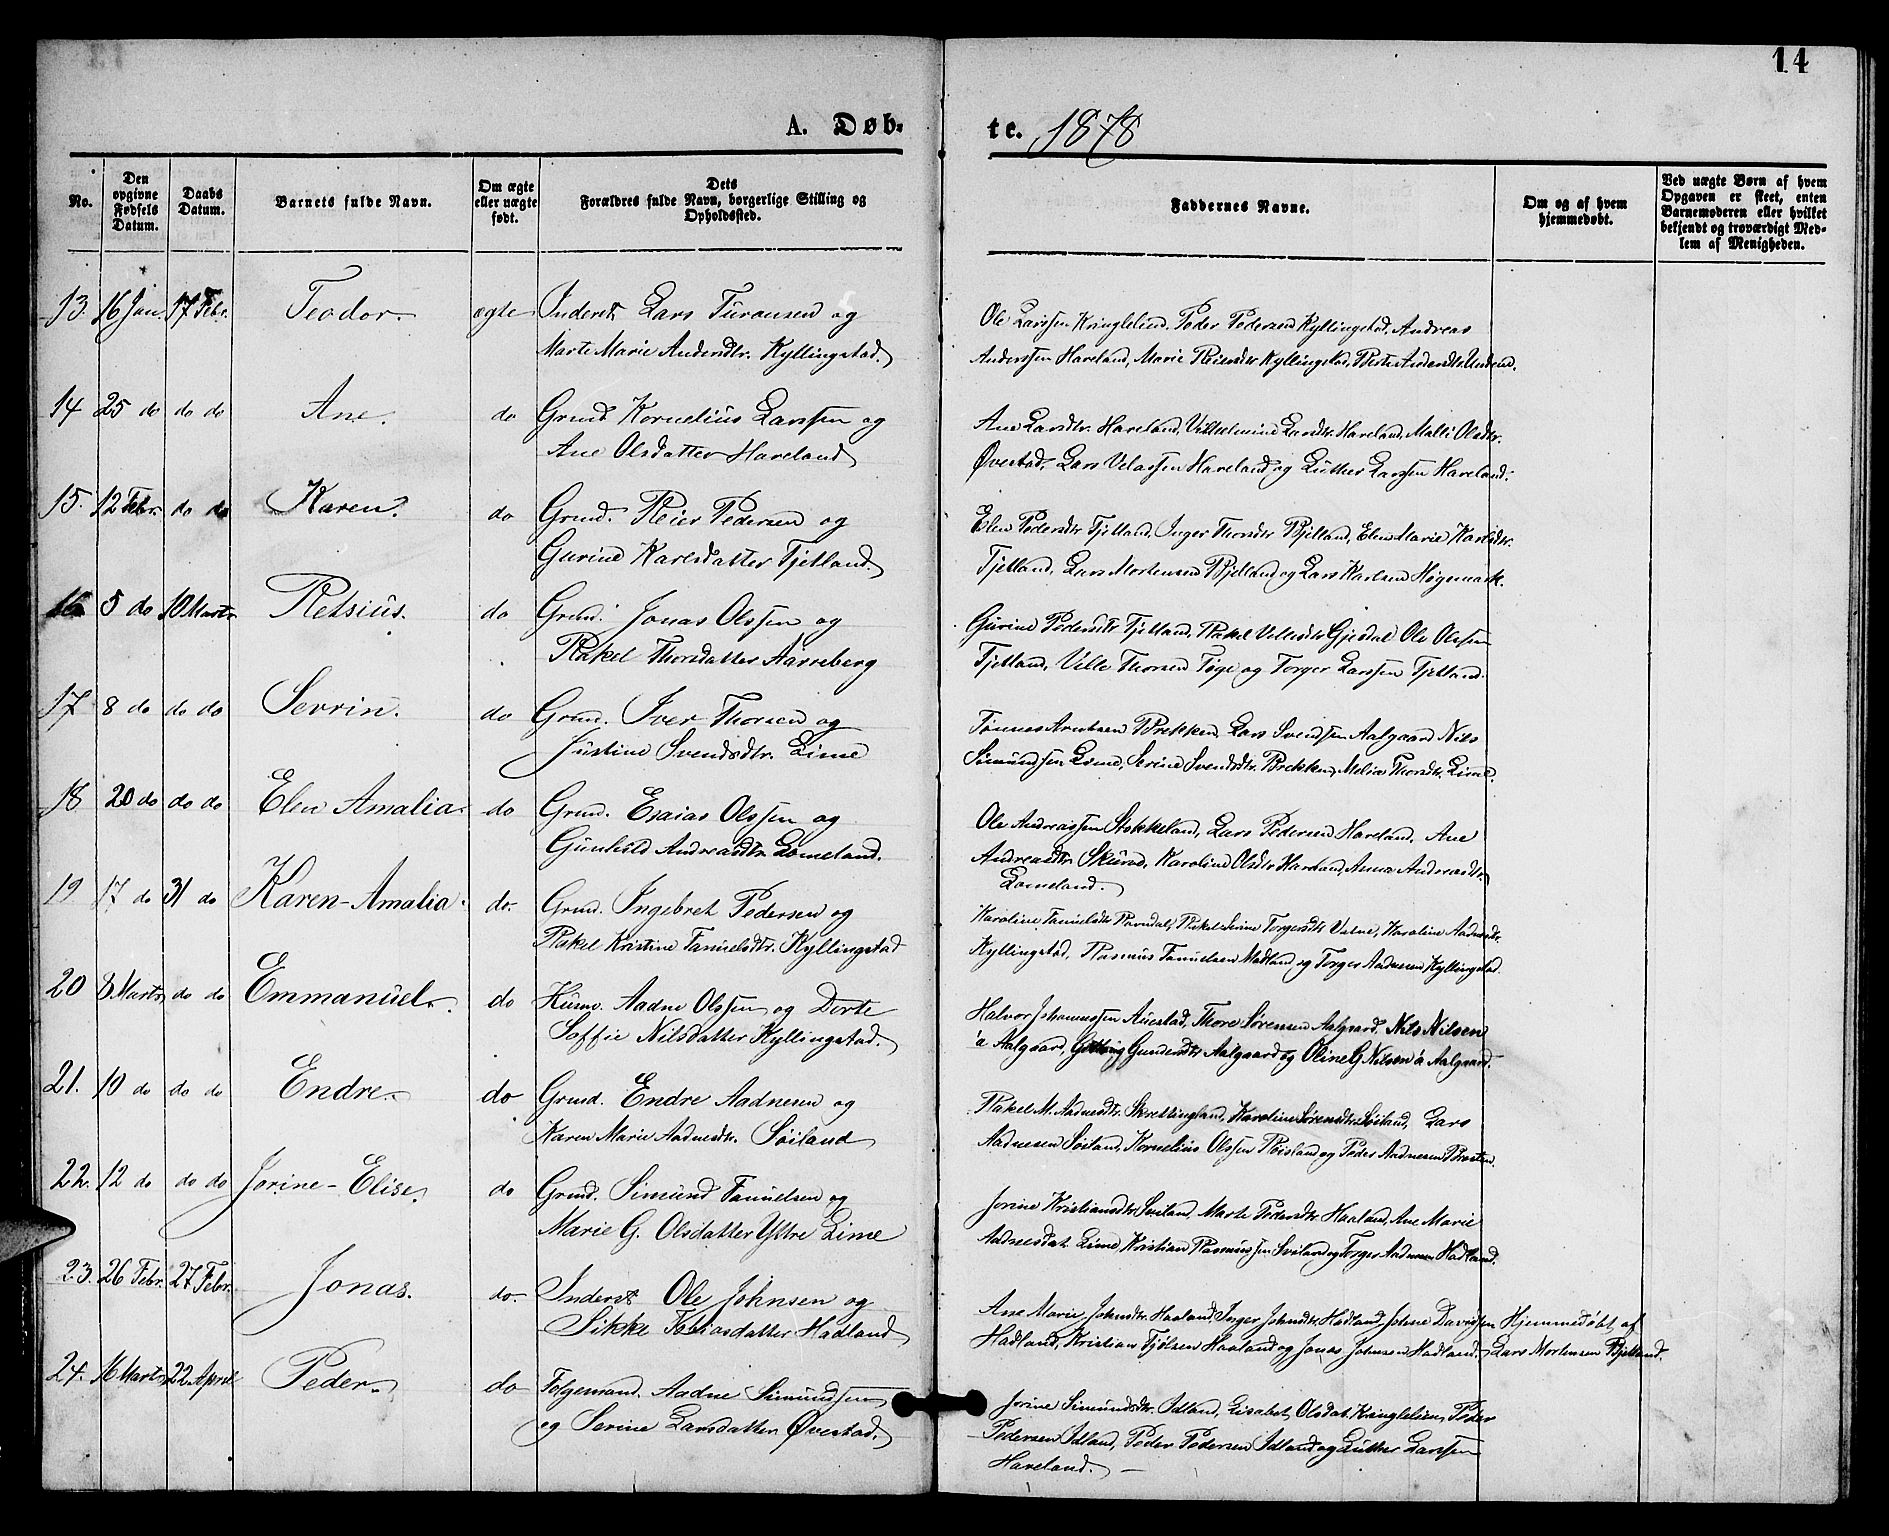 14
A. Døb-
te. 1878
No.
Den opgivne Fødsels Datum.
Daabs Datum.
Barnets fulde Navn.
Om ægte eller uægte født.
Dets Forældres fulde Navn, borgerlige Stilling og Opholdssted.
Faddernes Navne.
Om og af hvem hjemmedøbt.
Ved uægte Børn af hvem Opgaven er skeet, enten Barnemoderen eller hvilket bekjendt og troværdigt Medlem af Menigheden.
13. 16 Jan. 17 Febr. Teodor. ægte Inderst. Lars Turansen og
Marte Marie Andersdtr. Kyllingstad.
Ole Larssen Kringlelien. Peder Pedersen Kyllingstad. Andreas
Anderssen Haveland, Marie Reiersdtr Kyllingstad, Berte Andersdtr.
14 25 do do do Ane. do Grmd. Kornelius Larssen og
Ane Olsdatter Haveland
Ane Larsdtr. Haveland, Vilhelmine Larsdtr. Haveland, Malli Olsdtr.
Øvestad, Lars Velassen Haveland og Luther Larssen Haveland.
15. 12 Febr. do do Karen. do Grmd. Reier Pedersen og
Gurine Karlsdatter Fjetland.
Elen Pedersdtr Fjetland, Inger Thorsdtr Bjelland, Elen Marie Karlsdtr.
Fjetland, Lars Mortensen Bjelland og Lars Karlsen Høgemark.
16 5 do 10 Marts Retsius. do Grmd. Jonas Olssen og
Rakel Thorsdatter Aarreberg
Gurine Pedersdtr Fjetland, Rakel Vellesdtr Gjesdal Ole Olssen
Fjetland, Velle Thorsen Tøge og Torger Larssen Fjetland.
17 8 do do do Serrin. do Grmd. Iver Thorsen og
Justine Svendsdtr. Lime
Tønnes Arntsen Brekken, Lars Svendsen Aalgaard Nils
Simundssen Lime, Serine Svendsdtr. Brekken, Melia Thorsdtr. Lime.
18. 20 do do do Elen Amalia. do Grmd. Esaias Olssen og
Gunhild Andreasdtr. Lomeland.
Ole Andreassen Stokkeland, Lars Pedersen Haveland, Ane
Andreasdtr. Skurve, Karoline Olsdtr Haveland, Anna Andreasdtr.
Lomeland.
19 17 do 31 do Karen-Amalia. do. Grmd. Ingebret Pedersen og
Rakel Kristine Tanuelsdtr. Kyllingstad
Karoline Tanuelsdtr Ravndal, Rakel Serine Torgersdtr Valne, Karoline Aadnesdtr.
Kyllingstad, Rasmus Tanuelsen Madland og Torger Aadnesen Kyllingstad.
20 8 Marts do do Emmanuel. do Husm. Aadne Olssen og Dorte
Soffie Nilsdatter Kyllingstad.
Halvor Johannessen Auestad, Thore Sørensen Aalgaard, Nils Nilsen
a Aalgaard, Gundersdtr Aalgaard og Oline G Nilsen a Aalgaard.
21. 10 do do do Endre. do Grmd. Endre Aadnesen og
Karen Marie Aadnesdtr. Søiland
Rakel M. Aadnesdtr. Skrettingland, Karoline Sørensdtr. Søiland, Lars
Aadnesen Søiland, Kornelius Olssen Røisland og Peder Aadnesen Brosten.
22. 12 do do do Jorine-Elise. do Grmd. Simund Tanuelsen og
Marie G. Olsdatter Ystre Lime
Jorine Kristiansdtr Sviland, Marte Pedersdtr Haaland, Ane Marie
Aadnesdat. Lime, Kristian Rasmussen Sviland og Torger Aadnesen Hadland.
23. 26 Febr. 27 Febr. Jonas. do. Inderst. Ole Johnsen og
Sikke Tobiasdatter Hadland
Ane Marie Johnsdtr. Haaland, Inger Johnsdtr Hadland, Johne Davidsen
Hadland, Kristian Tjølsen Haaland og Jonas Johnsen Hadland.
Hjemmedøbt af
Lars Mortensen Bjelland.
24. 16 Marts 22 April Peder. do Folgemand. Aadne Simundssen
og Serine Larsdatter Øvestad.
Jorine Simundsdtr. Idland, Lisabet Olsdat. Kringlelien, Peder
Pedersen Idland, Peder Pedersen Idland og Luther Larssen
Haveland. –